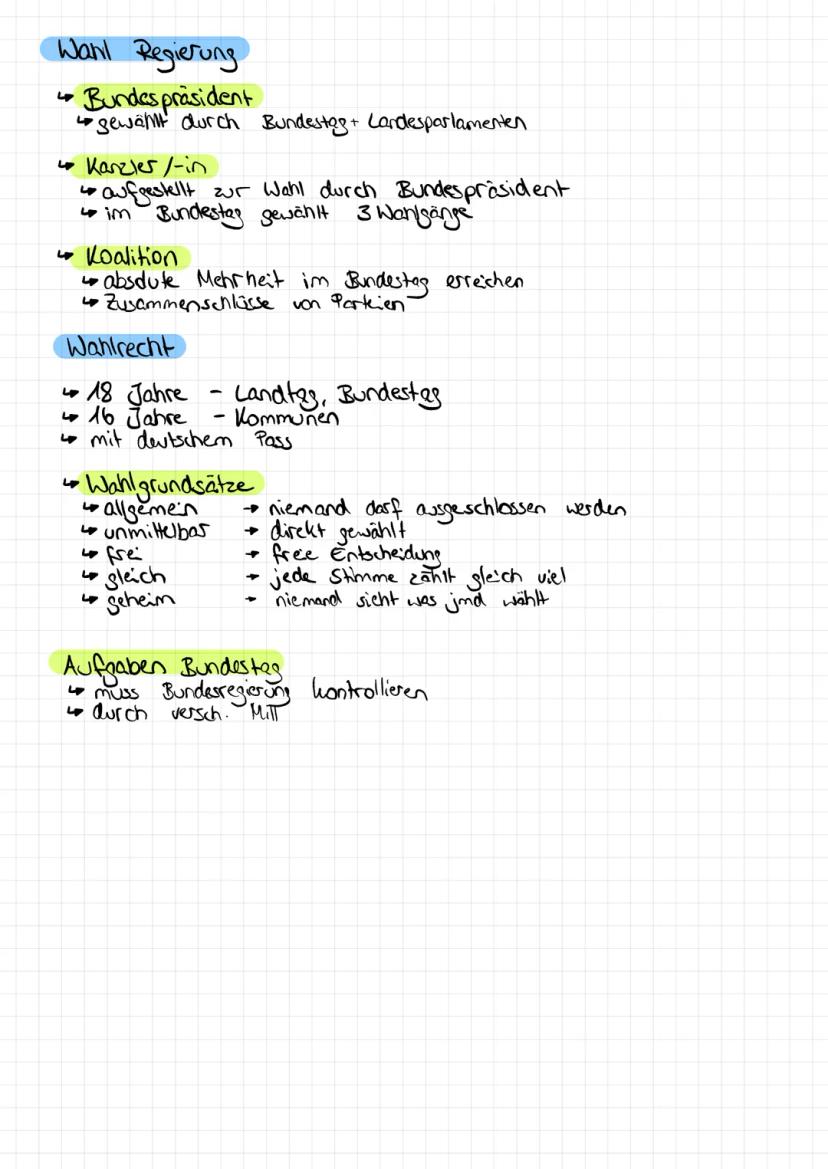 Wahl Regierung
↳ Bundespräsident
↳ gewählt durch Bundestag + Landesparlamenten
↳ Kanzler/-in
↳ aufgestellt zur Wahl durch Bundespräsident
↳ im Bundestag gewählt 3 Wahlgänge
↳ Koalition
↳ absolute Mehrheit im Bundestag erreichen
↳ Zusammenschlüsse von Parteien
Wahlrecht
↳ 18 Jahre - Landtag, Bundestag
↳ 16 Jahre - Kommunen
↳ mit deutschem Pass
↳ Wahlgrundsätze
↳ allgemein → niemand darf ausgeschlossen werden
↳ unmittelbar → direkt gewählt
↳ frei → freie Entscheidung
↳ gleich → jede Stimme zählt gleich viel
↳ geheim → niemand sieht was jmd wählt
Aufgaben Bundestag
↳ muss Bundesregierung kontrollieren
↳ durch versch. Mitt